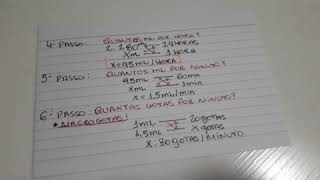 4º PASSO: QUANTOS ML POR HORA?
2.280ml 24 HORAS
Xml 1 HORA
X=95ML/HORA
5º PASSO: QUANTOS ML POR MINUTO?
95ml 60min
Xml 1min
X=1,5ml/min
6º PASSO: QUANTAS GOTAS POR MINUTO?
* MACROGOTAS!
1ml 20gotas
1,5ml X gotas
X: 30 GOTAS/MINUTO